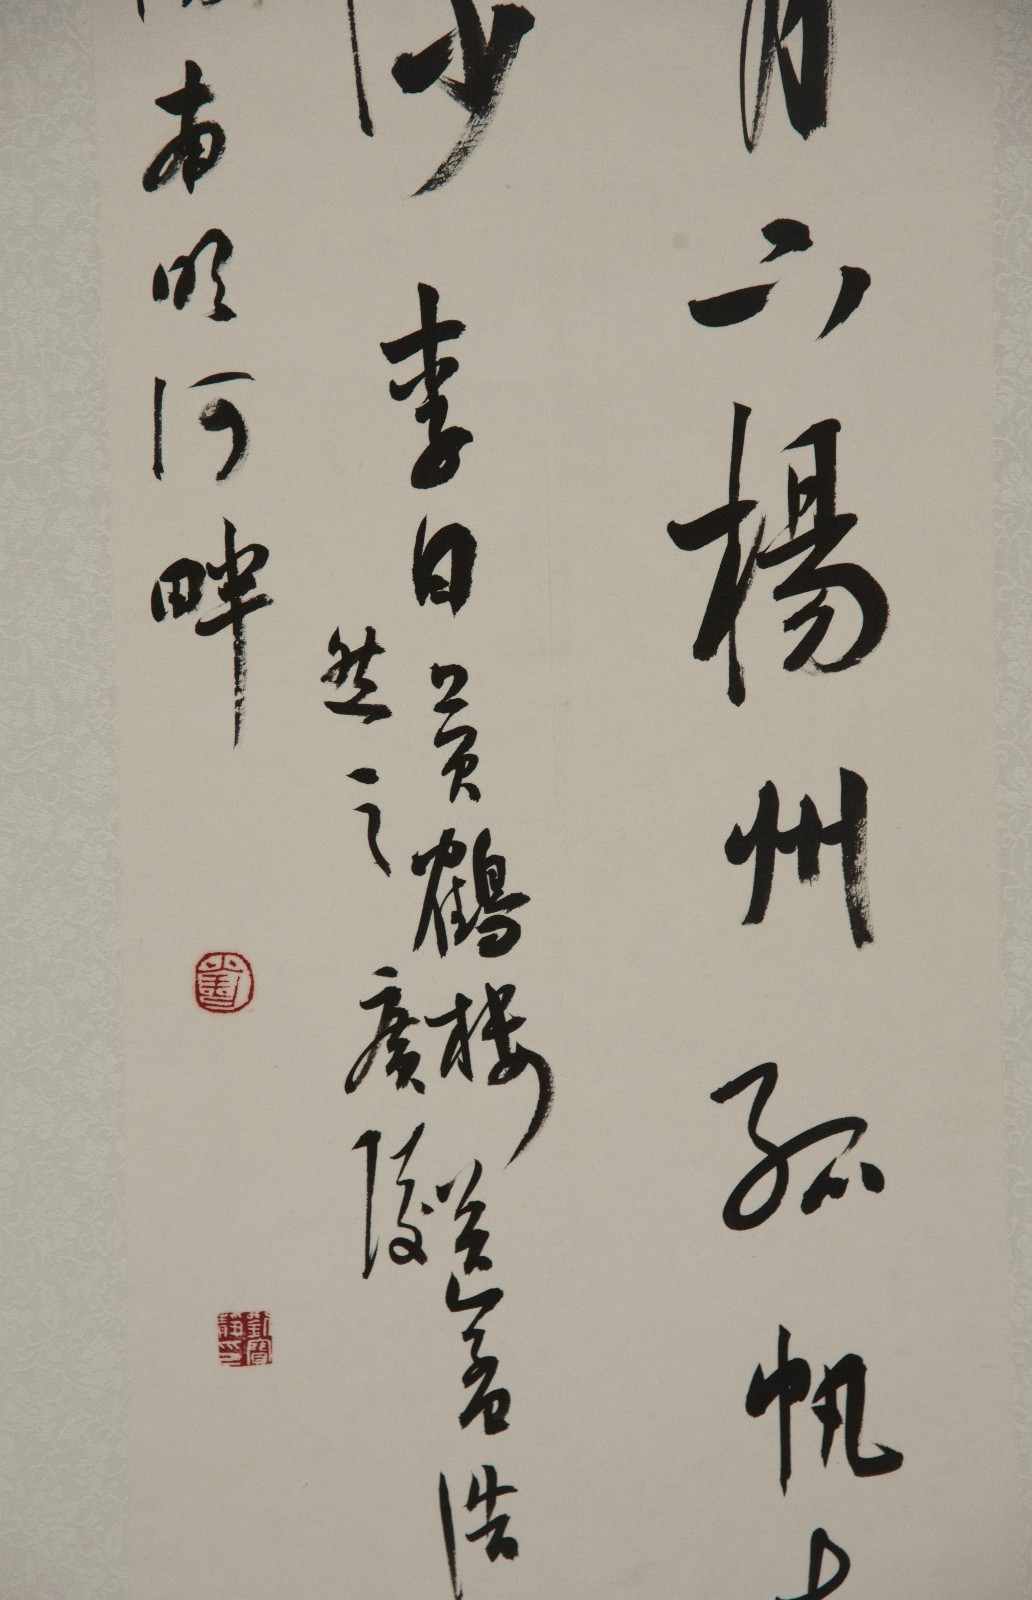 月下楊州孤帆
李白黃鶴樓送孟浩
然之廣陵
南明河畔